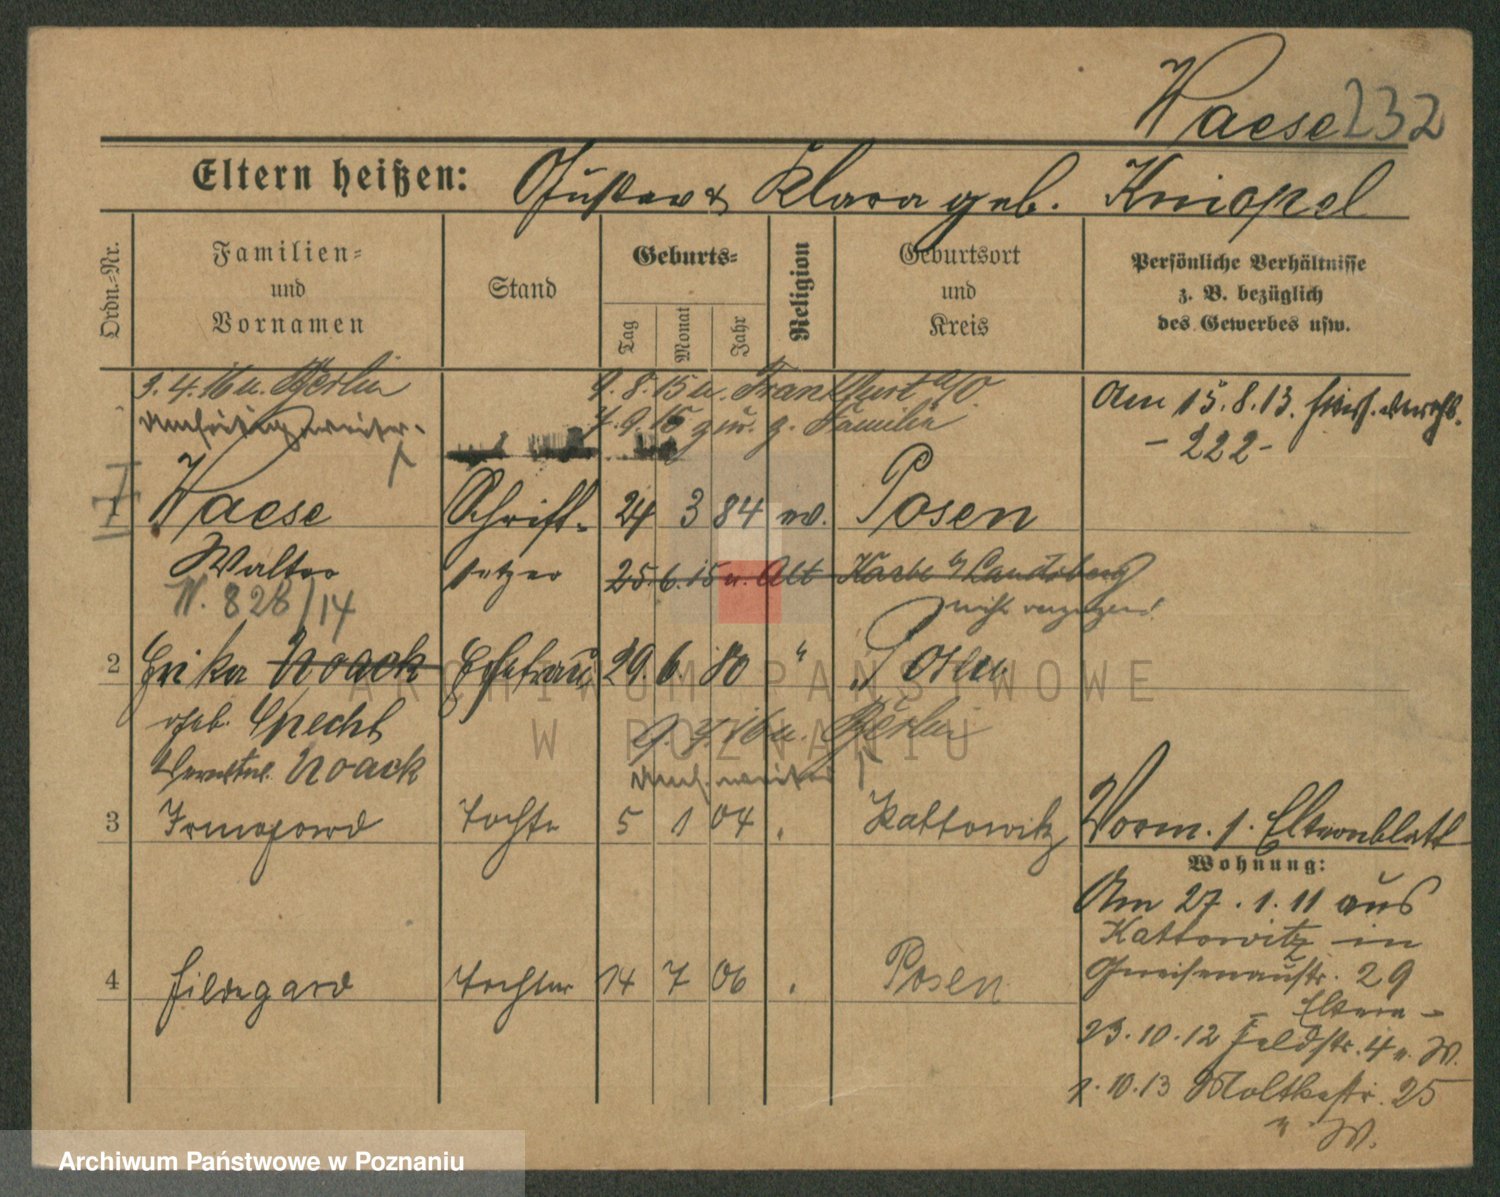 Waese 232
Eltern heißen: Gustav & Klara geb. Kniopel
Ordn.-Nr.
Familien-
und
Vornamen
Stand
Geburts-
Tag
Monat
Jahr
Religion
Geburtsort
und
Kreis
Persönliche Verhältnisse
z. B. bezüglich
des Gewerbes usw.
4. 16 u. Berlin
9. 8. 15 u. Frankfurt a/O
7. 9. 15 zur. z. Familie
Am 15. 8. 13.
- 222 -
1 Waese Schrift- 24 3 84 ev. Posen
Walter setzer 25. 6. 15 u. Alt Karbe Landsberg
nicht
N. 828/14
2 Erika Noack Ehefrau 29. 6. 80 " Posen
geb. Specht
Noack
16 u. Berlin
3 Irmgard Tochter 5 1 04 Kattowitz
Vorm. s. Elternblatt
Wohnung:
Am 27. 1. 11 aus
Kattowitz in
Gneisenaustr. 29
- Eltern -
4 Hildegard Tochter 14 7 06 Posen
23. 10. 12 Feldstr. 4 u. W.
10. 13 Moltkestr. 25
u. W.
ARCHIWUM PAŃSTWOWE
W POZNANIU
Archiwum Państwowe w Poznaniu